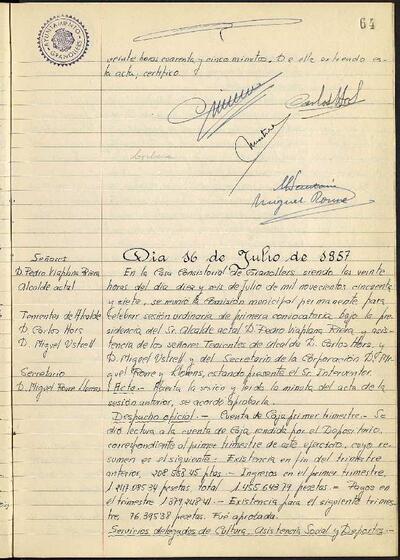 64
AYUNTAMIENTO
GRANOLLERS
veinte horas cuarenta y cinco minutos. De ella extiendo es-
ta acta, certifico.
Carlos Hors
Miguel Roure
Dia 16 de Julio de 1957
Señores
D. Pedro Viaplana Riera
Alcalde actal
Tenientes de Alcalde
D. Carlos Hors
D. Miguel Ustrell
Secretario
D. Miguel Roure Llorens
En la Casa Consistorial de Granollers, siendo las veinte
horas del dia diez y seis de julio de mil novecientos cincuenta
y siete, se reunió la Comisión municipal permanente para
celebrar sesión ordinaria de primera convocatoria bajo la pre-
sidencia del Sr. Alcalde actal D. Pedro Viaplana Riera, y asis-
tencia de los señores Tenientes de Alcalde D. Carlos Hors, y
D. Miguel Ustrell y del Secretario de la Corporación D. Mi-
guel Roure y Llorens, estando presente el Sr. Interventor.
Acta.- Abierta la sesión y leida la minuta del acta de la
sesión anterior, se acordó aprobarla.
Despacho oficial.- Cuenta de Caja primer trimestre.- Se
dió lectura a la cuenta de caja rendida por el Depositario,
correspondiente al primer trimestre de este ejercicio, cuyo re-
sumen es el siguiente: Existencia en fin del trimestre
anterior, 208.553'45 ptas.- Ingresos en el primer trimestre,
1.247.085'34 pesetas, total 1.455.643'79 pesetas.- Pagos en
el trimestre 1.379.248'41.- Existencia para el siguiente trimes-
tre, 76.395'38 pesetas. Fué aprobada.
Servicios delegados de Cultura, Asistencia Social y Deportes.-